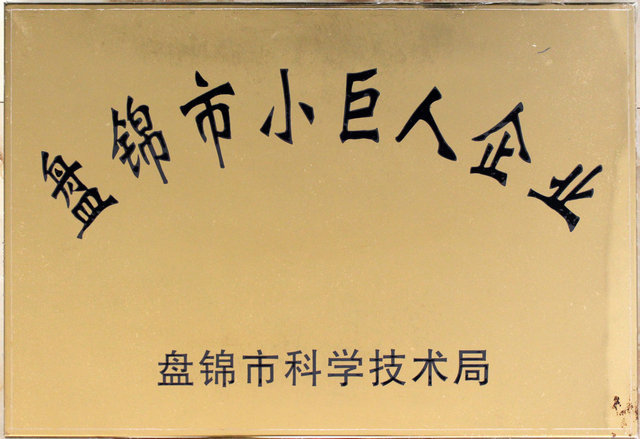 盘锦市小巨人企业
盘锦市科学技术局